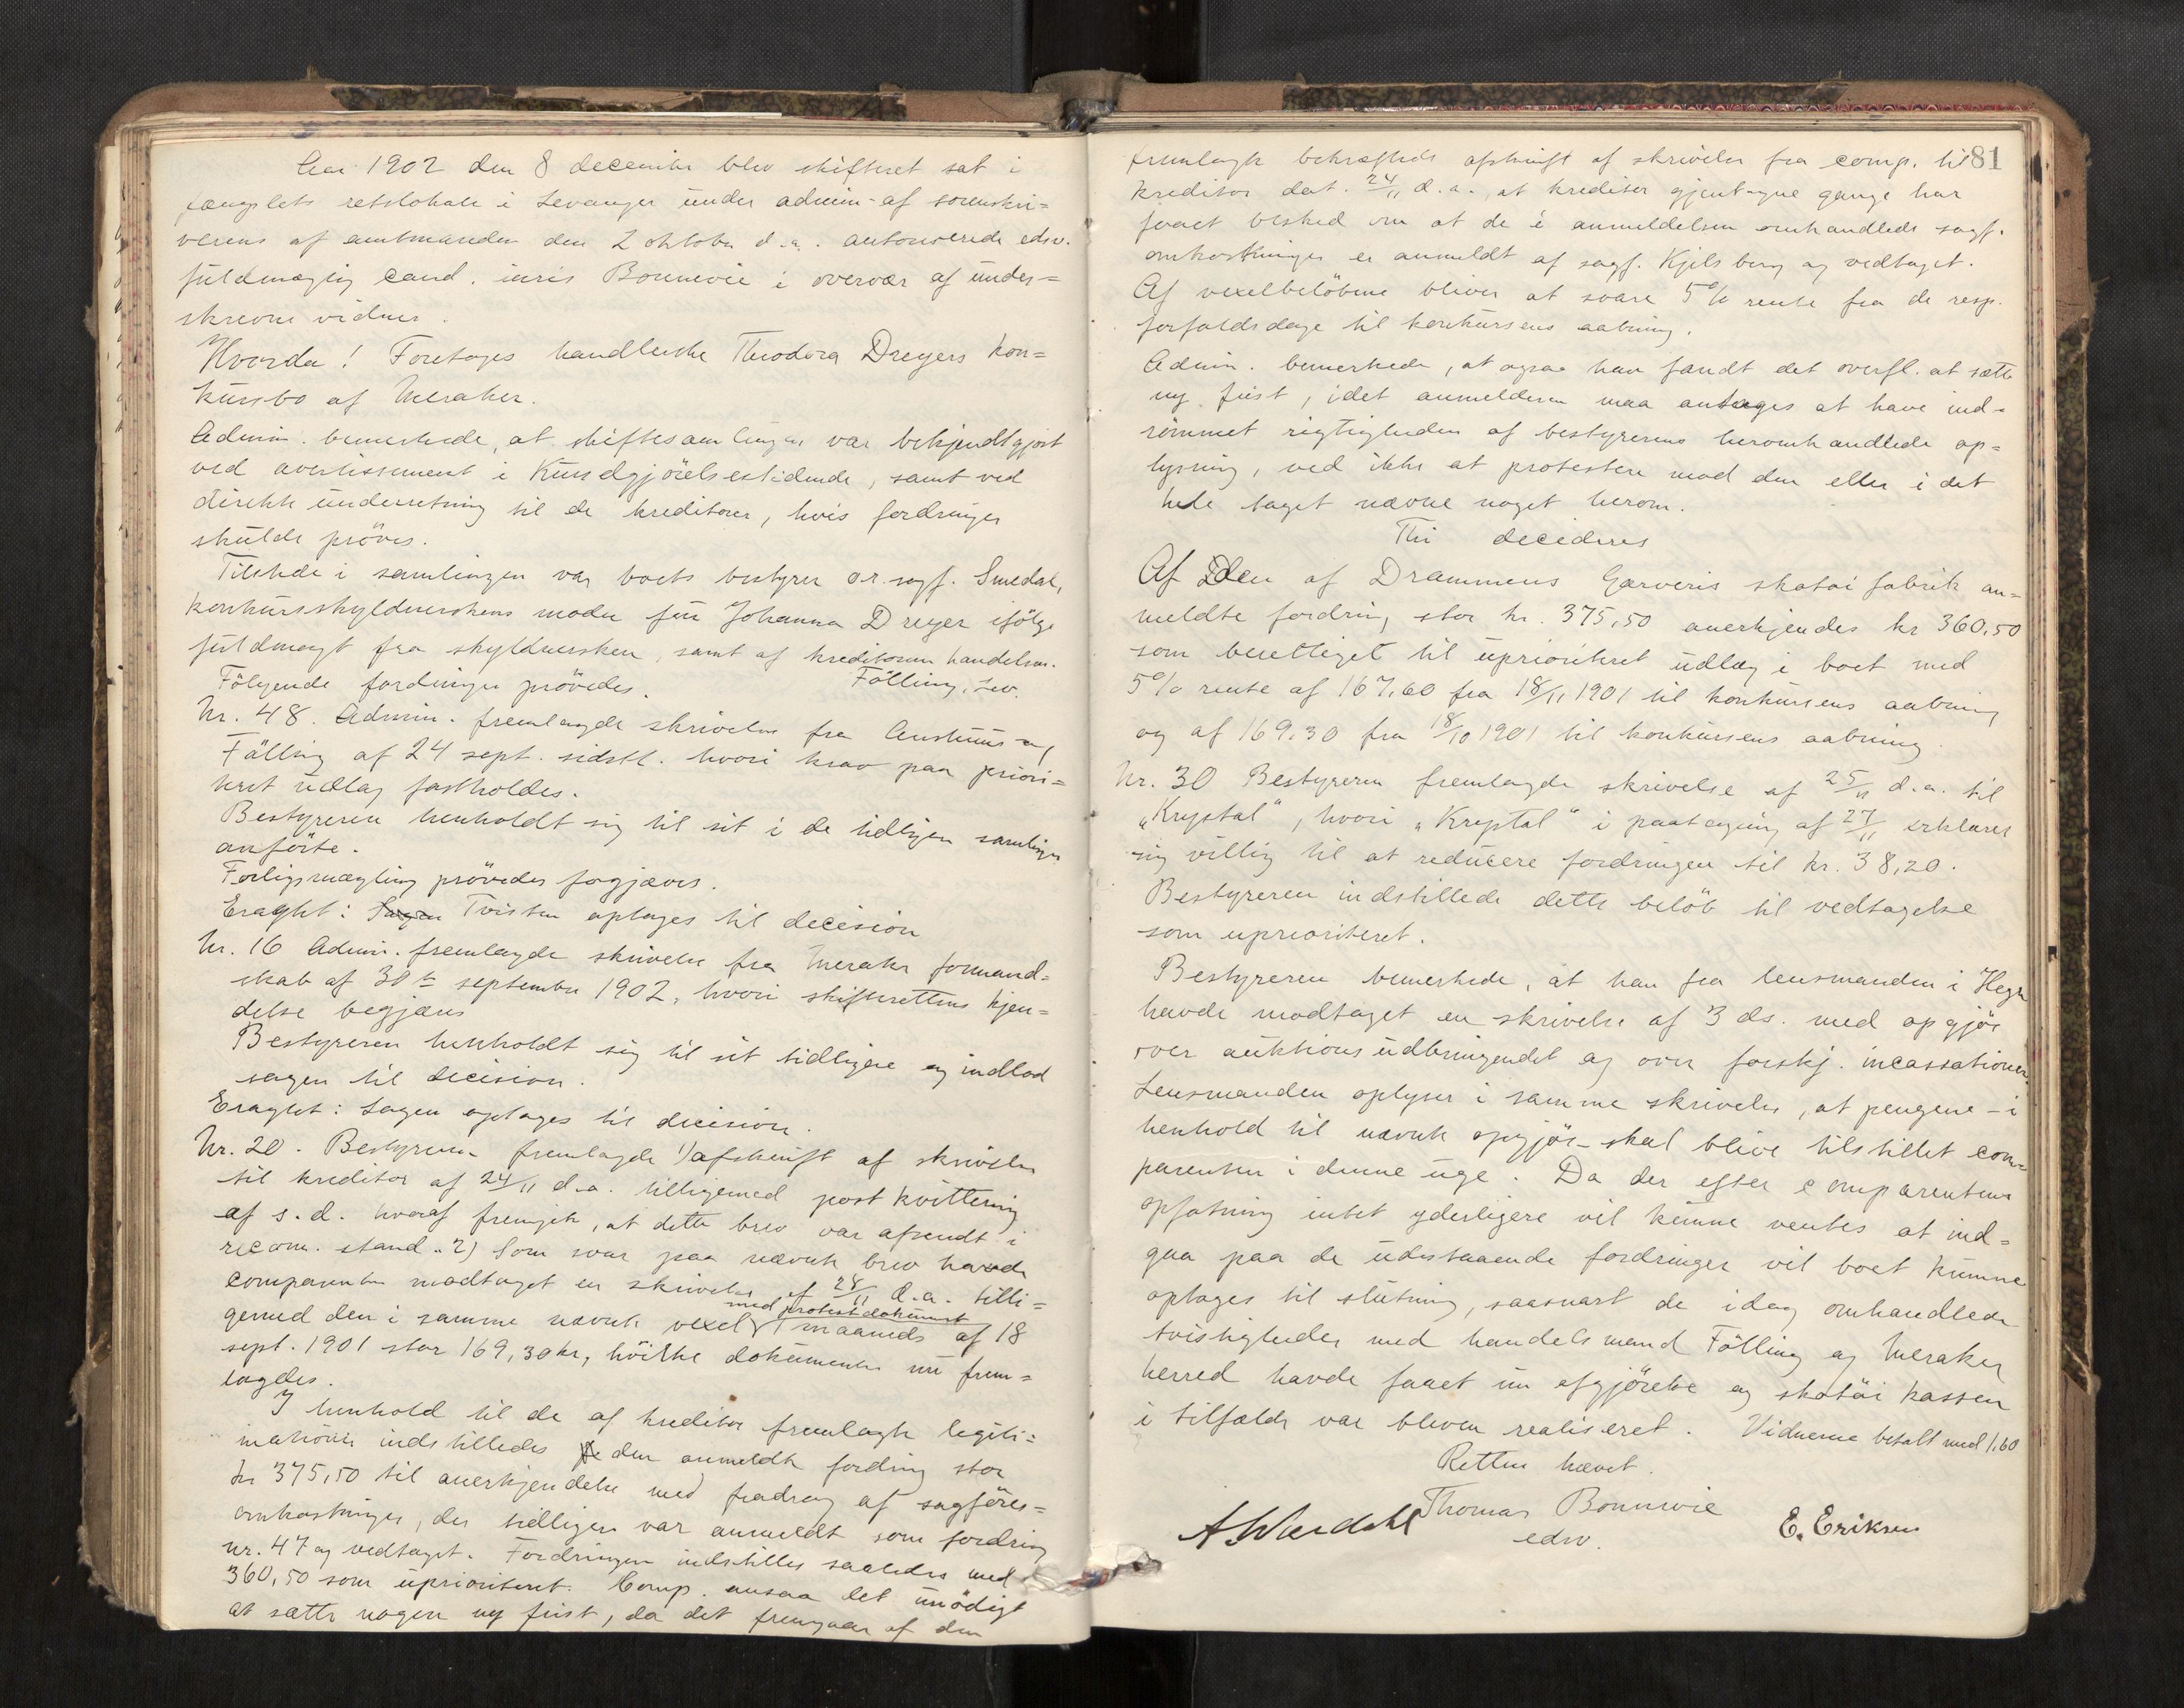 Aar 1902 den 8 december blev skifteret sat i
fængslets retslokale i Levanger under admin. af sorenskri=
verens af amtmanden den 2 oktober d.a. autoriserede edsv.
fuldmægtig cand. iuris Bonnevie i overvær af under=
skrevne vidner.
Hvorda! Foretages handlerske Theodora Dreyers kon=
kursbo af Meraker.
Admin. bemerkede, at skiftesamlingen var bekjendtgjort
ved avertissement i Kundgjörelsestidende, samt ved
direkte underretning til de kreditorer, hvis fordringer
skulde pröves.
Tilstede i samlingen var boets bestyrer o.r.sagf. Smedal,
konkursskyldnerskens moder fru Johanna Dreyer ifölge
fuldmagt fra skyldnersken, samt af kreditorerne handelsm.
Fölling, Lev.
Fölgende fordringer prövedes.
Nr. 48. Admin. fremlagde skrivelse fra
Fölling af 24 sept. sidstl. hvori krav paa priori=
teret udlæg fastholdes.
Bestyreren henholdt sig til sit i de tidligere samlinger
anförte.
Forligsmægling prövedes forgjæves.
Eragtet: Sagen Tvisten optages til decision
Nr. 16 Admin. fremlagde skrivelse fra Meraker formand=
skab af 30te september 1902, hvori skifterettens kjen=
delse begjæres
Bestyreren henholdt sig til sit tidligere og indlod
sagen til decision.
Eragtet: Sagen optages til decision.
Nr. 20. Bestyreren fremlagde 1) afskrift af skrivelse
til kreditor af 24/11 d.a. tilligemed post kvittering
af s.d. hvoraf fremgik, at dette brev var afsendt i
recom. stand. 2) Som svar paa nævnte brev havde
comparenten modtaget en skrivelse af 28/11 d.a. tilli=
med protestdokument
gemed den i samme nævnte vexel 1 maaneds af 18
sept. 1901 stor 169,30 kr, hvilke dokumenter nu frem=
lagdes.
I henhold til de af kreditor fremlagte legiti=
mationer indstilledes den anmeldte fordring stor
kr 375,50 til anerkjendelse med fradrag af sagförer=
omkostninger, der tidligere var anmeldt som fordring
nr. 47 og vedtaget. Fordringen indstilles saaledes med
360,50 som uprioriteret. Comp. ansaa det unödigt
at sætte nogen ny frist, da det fremgaar af den
81
fremlagte bekræftede afskrift af skrivelse fra comp. til
kreditor dat. 24/11 d.a., at kreditor gjentagne gange har
faaet besked om at de i anmeldelsen omhandlede sagf.
omkostninger er anmeldt af sagf. Kjelsberg og vedtaget.
Af vexelbelöbene bliver at svare 5% rente fra de resp.
forfaldsdage til konkursens aabning.
Admin. bemerkede, at ogsaa han fandt det overfl. at sætte
ny frist, idet anmelderen maa antages at have ind=
römmet rigtigheden af bestyrerens heromhandlede op=
lysning, ved ikke at protestere mod den eller i det
hele taget nævne noget herom.
Thi decideres
Af Den af Drammens Garveris skotöi fabrik an=
meldte fordring stor kr. 375,50 anerkjendes kr 360,50
som berettiget til uprioriteret udlæg i boet med
5% rente af 167,60 fra 18/11 1901 til konkursens aabning
og af 169,30 fra 18/10 1901 til konkursens aabning.
Nr. 30 Bestyreren fremlagde skrivelse af 25/11 d.a. til
„Krystal“, hvori „Krystal“ i paategning af 27/11 erklærer
sig villig til at reducere fordringen til kr. 38,20.
Bestyreren indstillede dette belöb til vedtagelse
som uprioriteret.
Bestyreren bemerkede, at han fra lensmanden i Hegra
havde modtaget en skrivelse af 3 ds. med opgjör
over auktionsudbringendet og over forskj. incassationer.
Lensmanden oplyser i samme skrivelse, at pengene – i
henhold til nævnte opgjör – skal blive tilstillet com=
parenten i denne uge. Da der efter comparentens
opfatning intet yderligere vil kunne ventes at ind=
gaa paa de udestaaende fordringer vil boet kunne
optages til slutning, saasnart de idag omhandlede
tvistigheder med handelsmand Fölling og Meraker
herred havde faaet sin afgjörelse og skotöi kassen
i tilfælde var bleven realiseret. Vidnerne betalt med 1,60
Retten hævet.
Thomas Bonnevie
edsv.
E. Eriksen